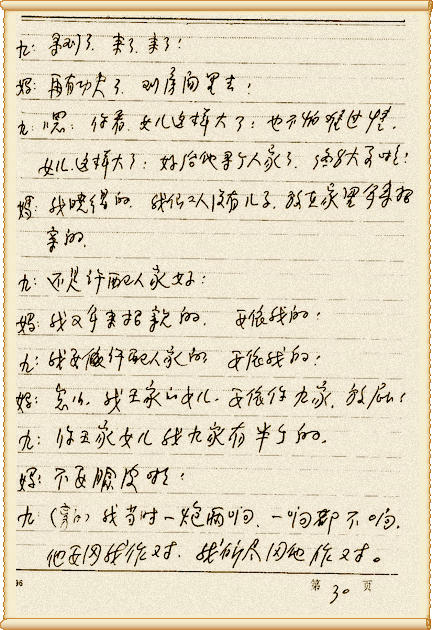 九：寻到了，来了，来了！
妈：再有功夫了，到房间里去！
九：嗯，你看，女儿这样大了！也不怕难过情，
女儿这样大了！好给他寻个人家了，
妈：我晓得的，我们二人没有儿子，放在家里
亲的。
九：还是许配人家好！
妈：我又要来招亲的，要依我的！
九：我要做许配人家的，要依我的！
妈：怎么，我王家的女儿，要依你九家，放屁！
九：你王家女儿我九家有半个的。
妈：不要脸皮啦！
九：（旁白）我当时一炮两响，一响都不响，
他要同我作对，我就尽同他作对。
96
第 30 页